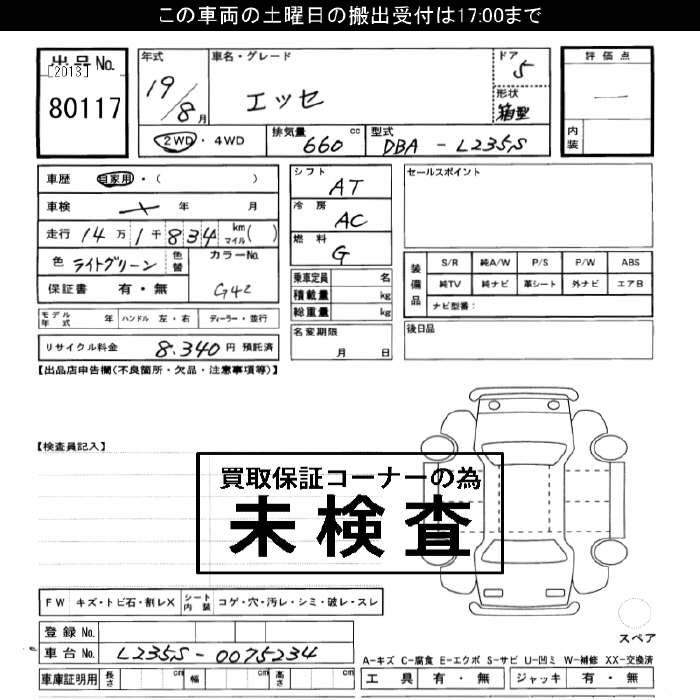 この車両の土曜日の搬出受付は17:00まで
出品No.
[2013]
80117
年式
19/8月
車名・グレード
エッセ
ドア
5
形状
箱型
評価点
―
内装
2WD・4WD
排気量
660 cc
型式
DBA-L235S
車歴 自家用・( )
車検 年 月
走行 14万1千834 km マイル ( )
色 ライトグリーン 色替
カラーNo.
G42
保証書 有・無
モデル年式 年 ハンドル 左・右 ディーラー・並行
リサイクル料金 8.340 円 預託済
シフト
AT
冷房
AC
燃料
G
乗車定員 名
積載量 kg
総重量 kg
名変期限
月 日
セールスポイント
装備品
S/R 純A/W P/S P/W ABS
純TV 純ナビ 革シート 外ナビ エアB
ナビ型番:
後日品
【出品店申告欄(不良箇所・欠品・注意事項等)】
【検査員記入】
買取保証コーナーの為
未検査
FW キズ・トビ石・割レX シート内装 コゲ・穴・汚レ・シミ・破レ・スレ
スペア
登録No.
車台No. L235S-0075234
車庫証明用 長さ cm 幅 cm 高さ cm
A-キズ C-腐食 E-エクボ S-サビ U-凹ミ W-補修 XX-交換済
工具 有・無 ジャッキ 有・無